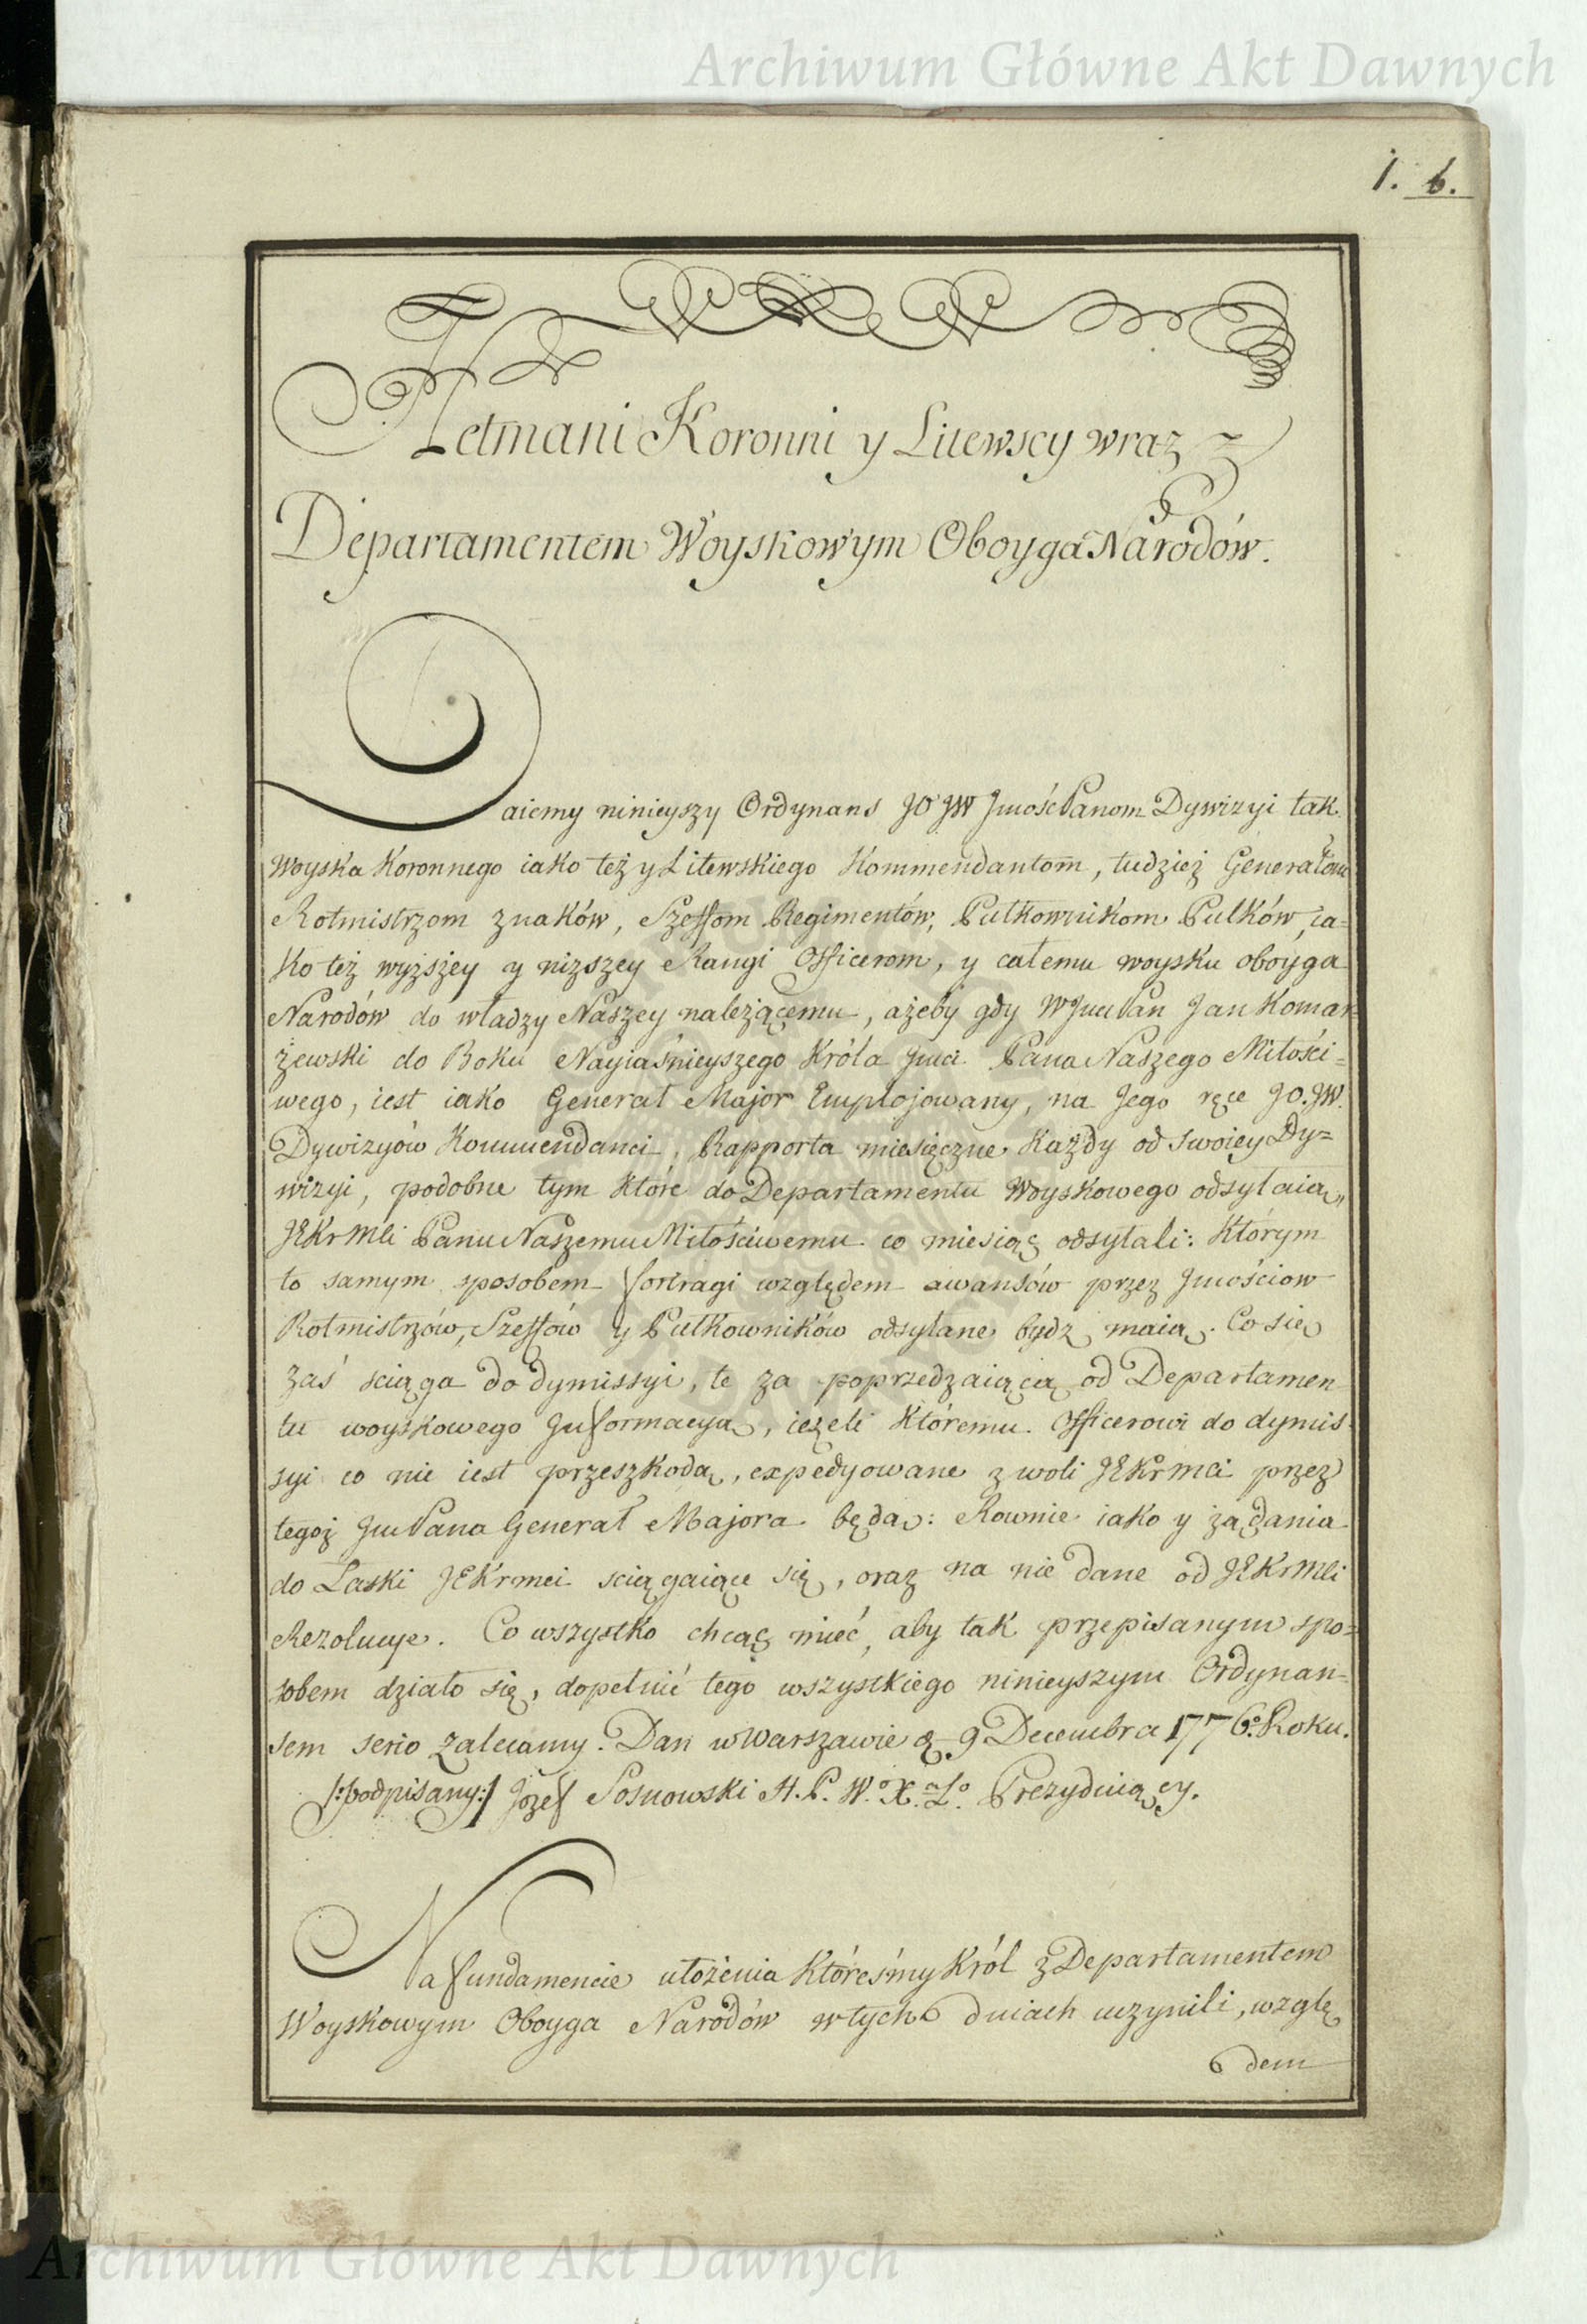 Archiwum Główne Akt Dawnych
1. 6.
Hetmani Koronni y Litewscy wraz z
Departamentem Woyskowym Oboyga Narodów.
Daiemy ninieyszy Ordynans JO JW Jmość Panom Dywizyi tak
Woyska Koronnego iako też y Litewskiego Kommendantom, tudzież Generałom
Rotmistrzom znaków, Szeffom Regimentów, Pułkownikom Pułków, ia-
ko też wyższey y niższey Rangi Officerom, y całemu woysku oboyga
Narodów do władzy Naszey należącemu, ażeby gdy WJmci Pan Jan Komar
żewski do Boku Nayiaśnieyszego Króla Jmci Pana Naszego Miłości=
wego, iest iako Generał Major Emplojowany, na Jego ręce JO.JW.
Dywizyów Kommendanci, Rapporta miesięczne każdy od swoiey Dy=
wizyi, podobne tym które do Departamentu Woyskowego odsyłaią,,
JEKrMci Panu Naszemu Miłościwemu co miesiąc odsyłali: którym
to samym sposobem fortragi względem awansów przez Jmościow
Rotmistrzów, Szeffów y Pułkowników odsyłane bydz maią. Co się
zaś sciąga do dymissyi, te za poprzedzaiącą od Departamen
tu woyskowego Informacyą, ieżeli któremu Officerowi do dymis
syi co nie iest przeszkodą, expedyowane z woli JEKrMci przez
tegoż Jmć Pana Generał Majora będą: Rownie iako y żądania
do Łaski JEKrmci sciągaiące się, oraz na nie dane od JEKrMci
Rezolucye. Co wszystko chcąc mieć, aby tak przepisanym spo=
sobem działo się, dopełnić tego wszystkiego ninieyszym Ordynan-
sem serio zalecamy. Dan w Warszawie d. 9 Decembra 1776.o Roku.
/:podpisany:/ Józef Sosnowski H. P. W.o X.a L.o Prezyduiący.
Na fundamencie ułożenia któreśmy Król z Departamentem
Woyskowym Oboyga Narodów w tych dniach uczynili, wzglę
dem
Archiwum Główne Akt Dawnych